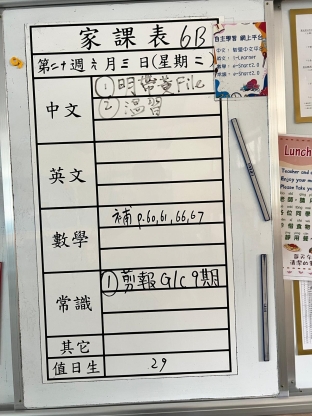 家課表 6B
第二十週 六月三日(星期二)
中文
①明帶黃File
②溫習
英文
數學
補 p.60,61,66,67
常識
①剪報 G/C 9期
其它
值日生
29
自主學習 網上平台
i-Learner
e-Smart2.0
e-Smart2.0
Lunch
Teacher and
Enjoy your
Please Take
老師,
各位同學